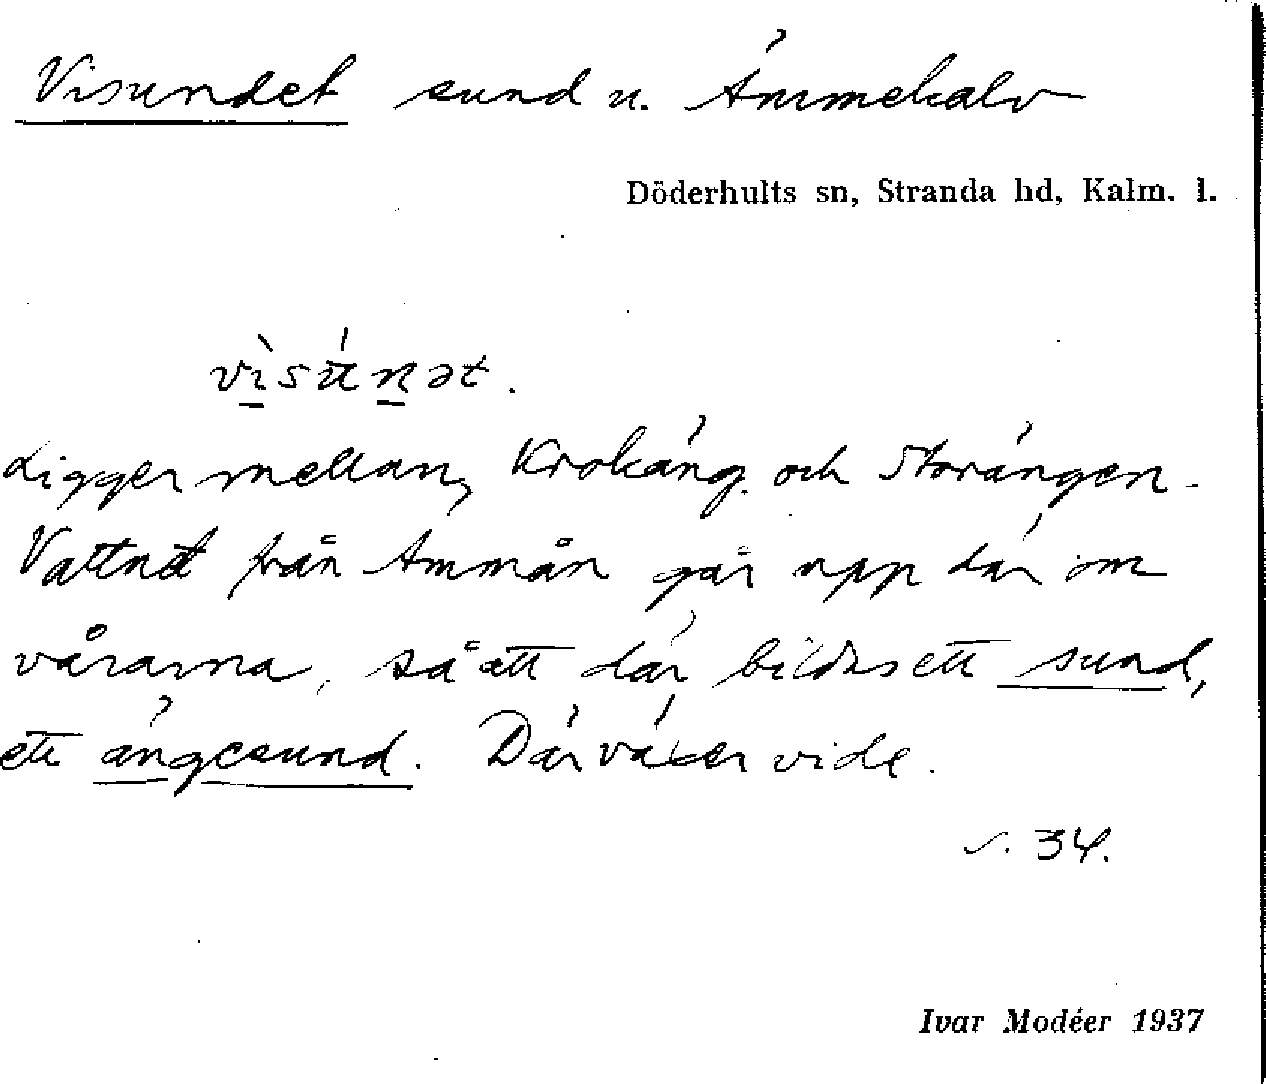 Visundet sund u. Ämmekalv
Döderhults sn, Stranda hd, Kalm. l.
vìsúnət.
Ligger mellan Krokäng. och Storängen.
Vattnet från Ammån går upp där om
vårarna, så att där bildas ett sund,
ett ängesund. Där växer vide.
s. 34.
Ivar Modéer 1937